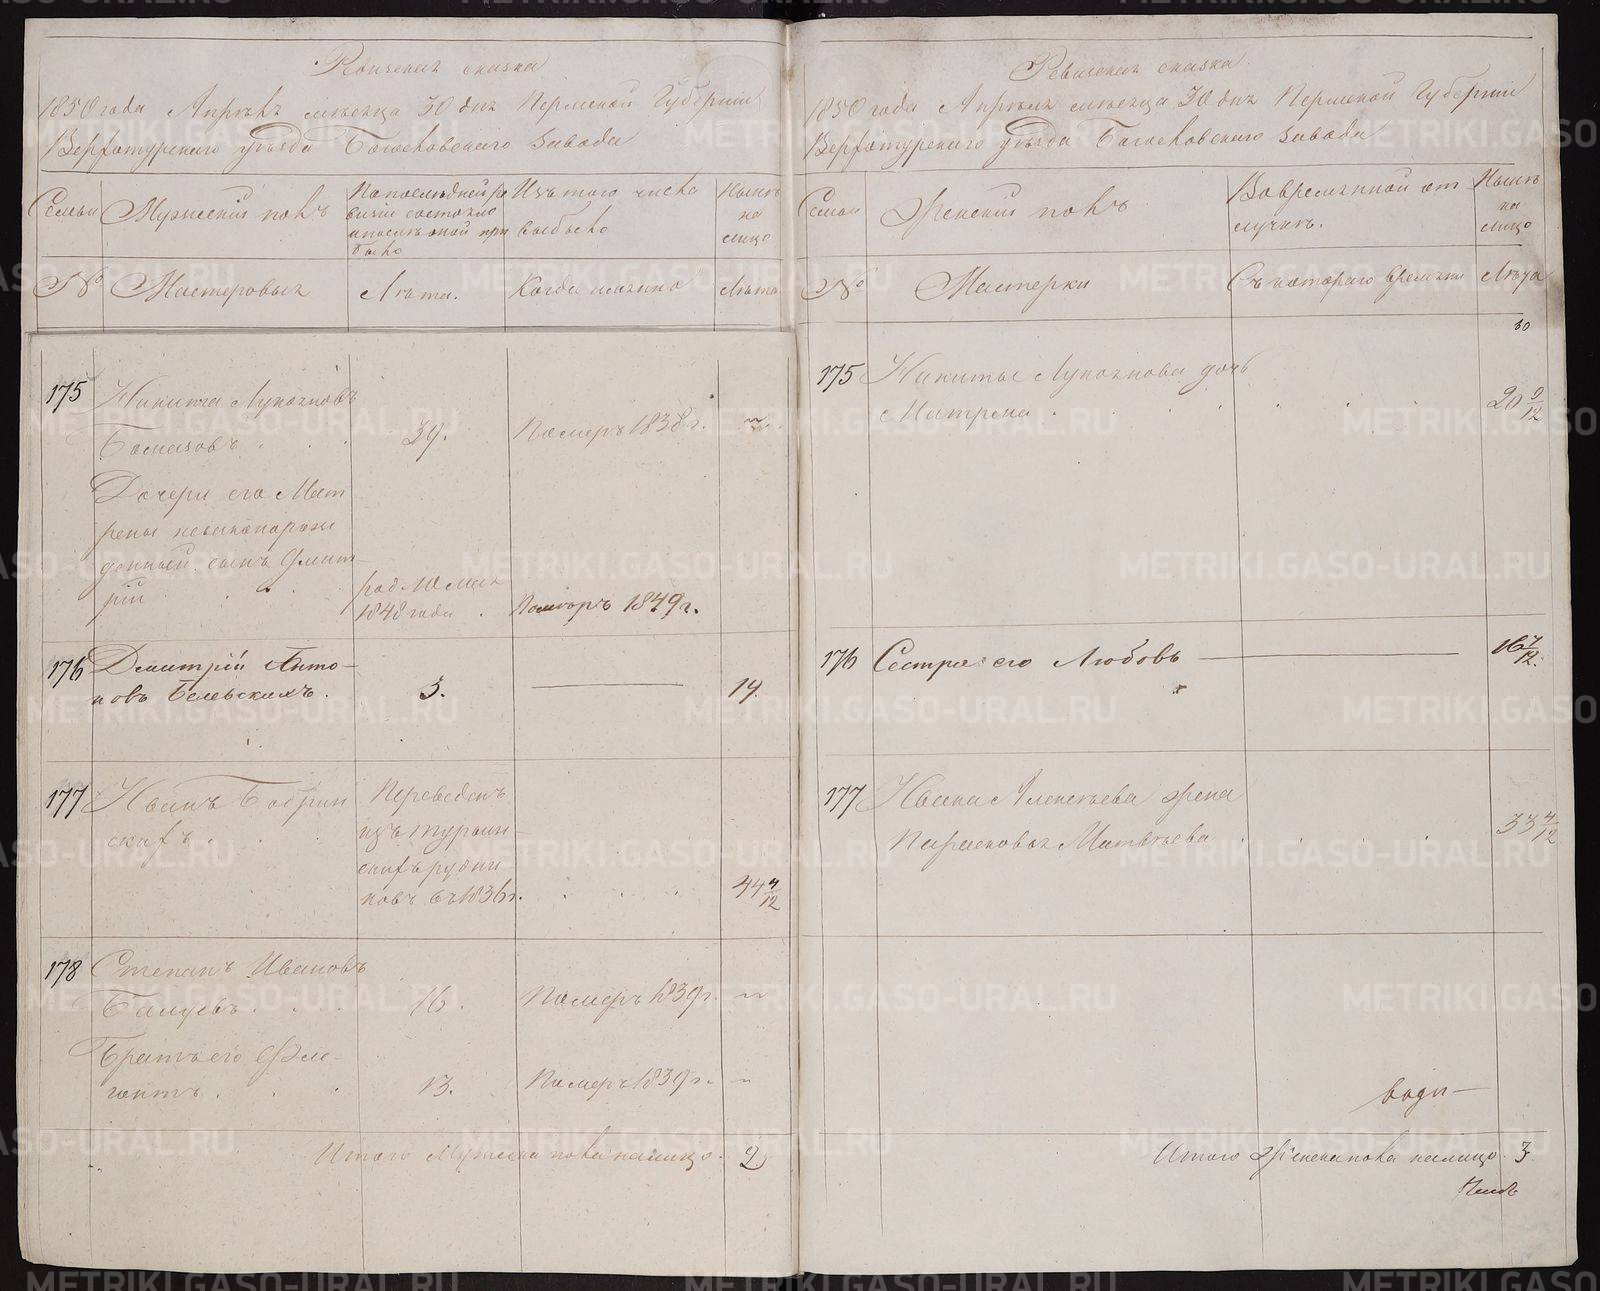 Ревизская сказка
1850 года Апреля месяца 30 дня Пермской Губернии
Верхотурского уезда Богословского завода
Семьи
Мужеский полъ
По последней ре
визіи состояло
и после оной при
было
Изъ того числа
выбыло
Ныне
на
лицо
№
Мастеровыя
Лета.
Когда именно
Лета
175
Никита Лукояновъ
39.
Померъ 1838 г.
Дочери его Мат
рены незаконорож
денный сынъ Дмит
рій
род.
1848 года
Померъ 1849 г.
176
Дмитрій Анто-
новъ Бельскихъ.
3.
14.
177
Иванъ
Переведенъ
изъ Турьин-
скихъ рудни
ковъ въ 1836 г.
44 4/12
178
Степанъ Ивановъ
16.
Померъ 1839 г.
Братъ его Фле-
гонтъ.
13.
Померъ 1839 г.
Итого Мужеска пола налицо.
2
Ревизская сказка
1850 года Апреля месяца 30 дня Пермской Губернии
Верхотурского уезда Богословского завода
Семьи
Женский полъ
Во временной от
лучке.
Ныне
на
лицо
№
Мастерки
Съ котораго времени
Лета
30
175
Никиты Лукоянова дочь
Матрена
20 9/12
176
Сестра его Любовь
16 7/12.
177
Ивана Алексеева жена
Парасковья Матвеева
33 4/12
Итого Женска пола налицо
3
METRIKI.GASO-URAL.RU